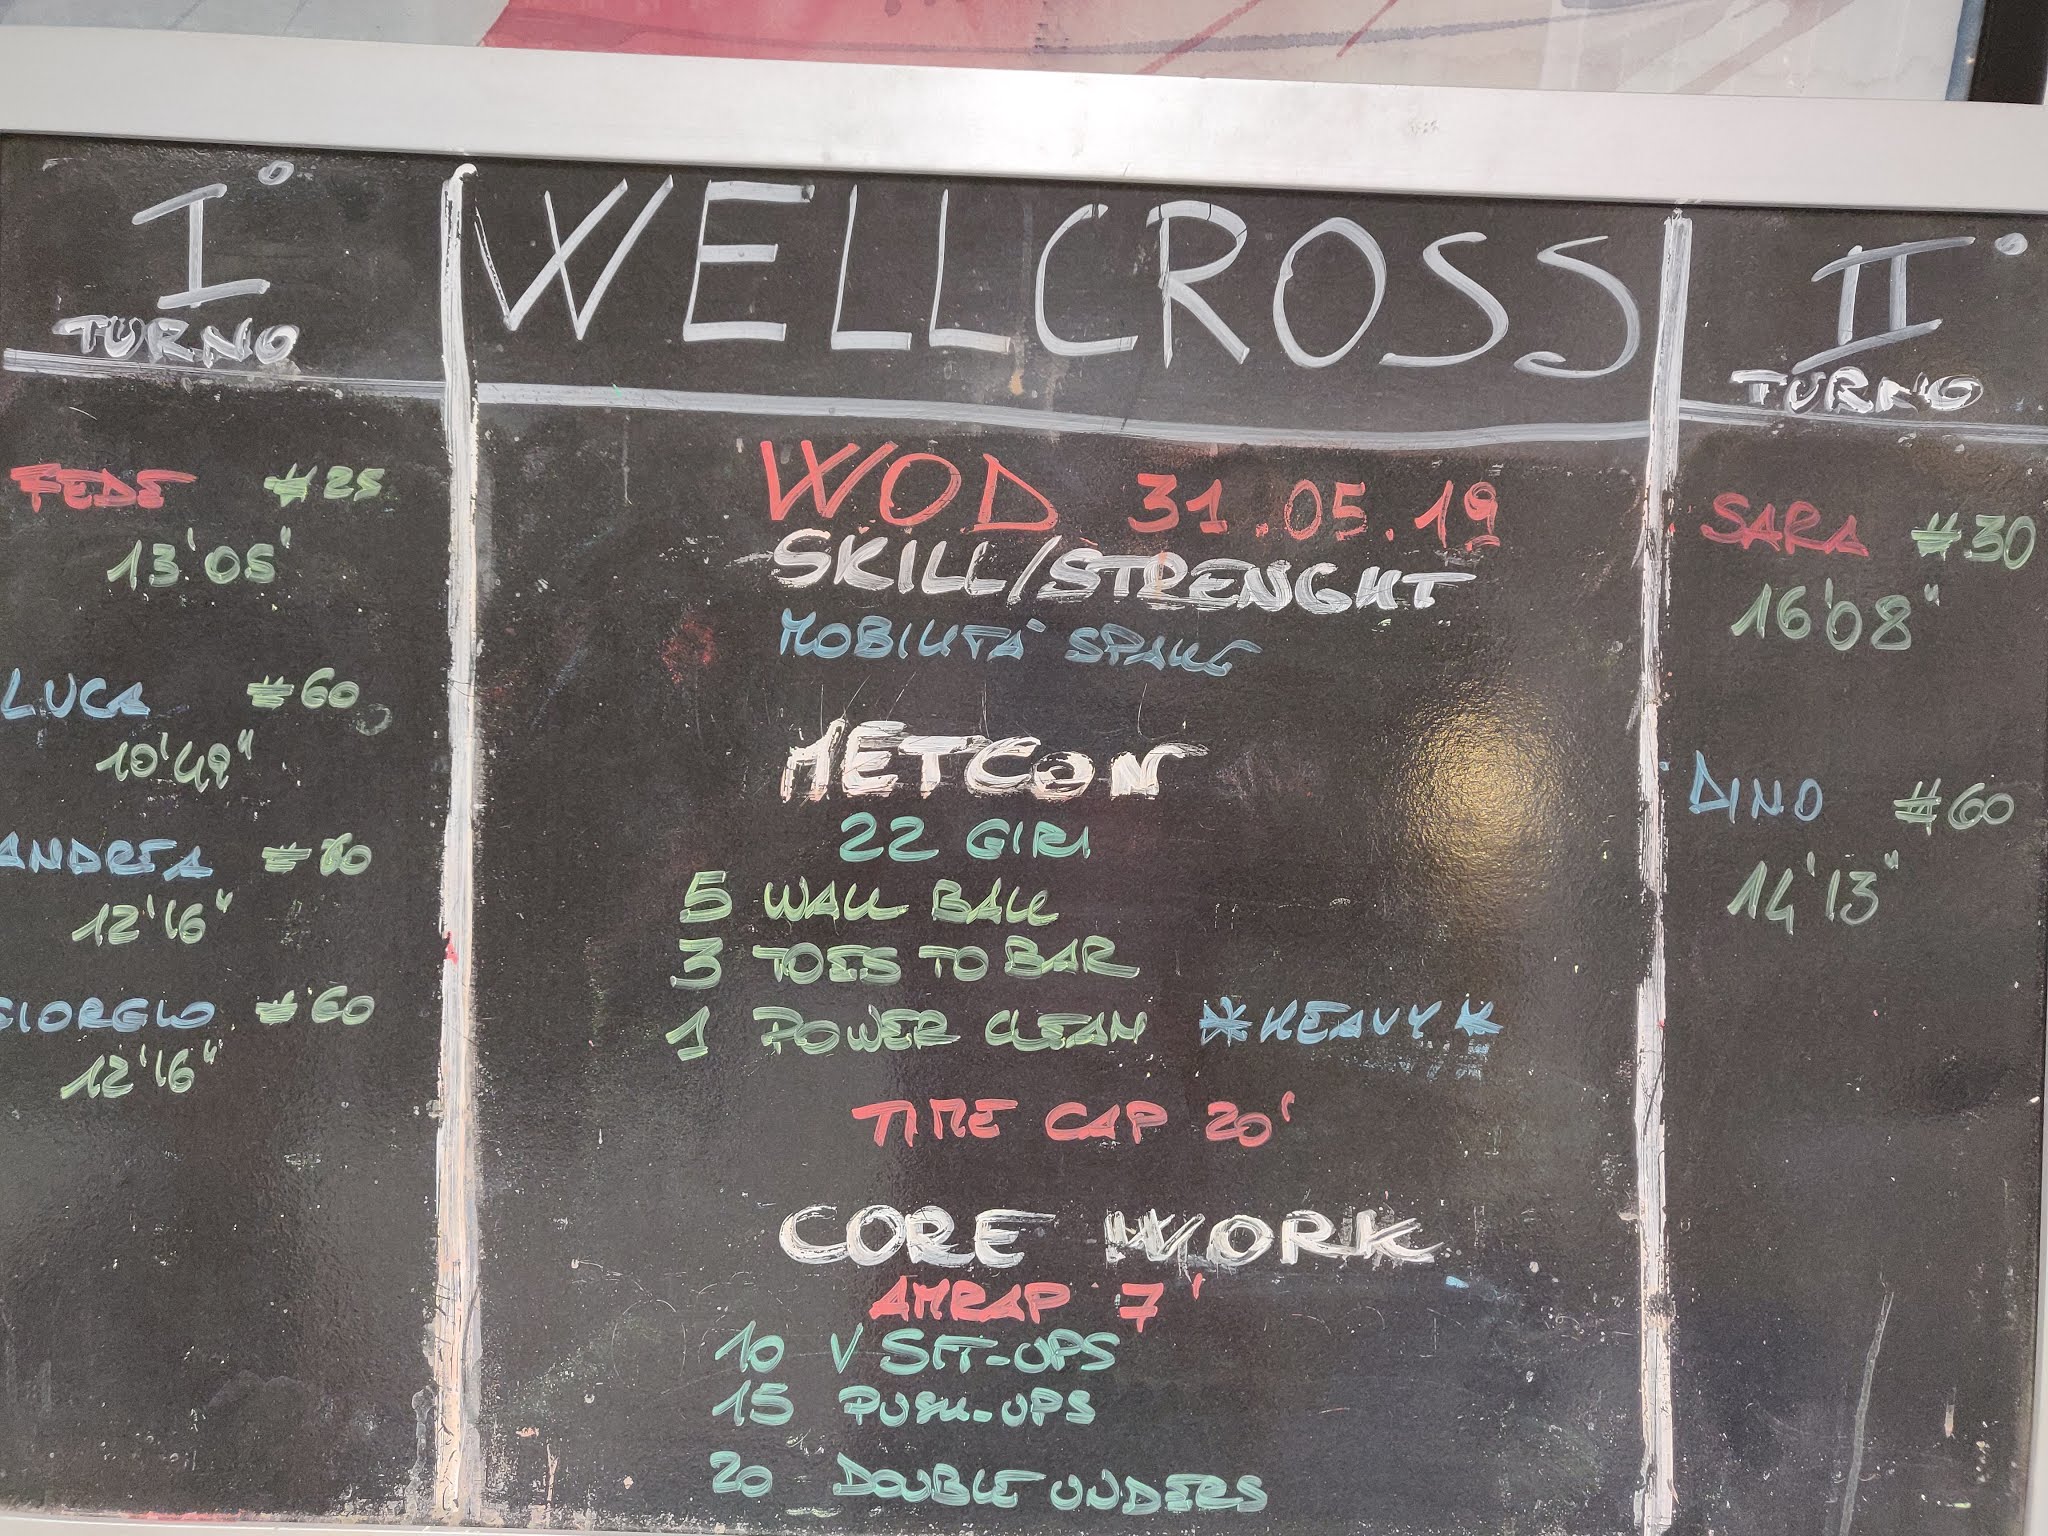 I°
TURNO
FEDE #25
13'05'
LUCA #60
10'49"
ANDREA #60
12'16"
GIORGIO #60
12'16"
WELLCROSS
WOD 31.05.19
SKILL/STRENGHT
MOBILITÀ SPALLE
METCON
22 GIRI
5 WALL BALL
3 TOES TO BAR
1 POWER CLEAN *HEAVY*
TIME CAP 20'
CORE WORK
AMRAP 7'
10 V SIT-UPS
15 PUSH-UPS
20 DOUBLE UNDERS
II°
TURNO
SARA #30
16'08"
DINO #60
14'13"